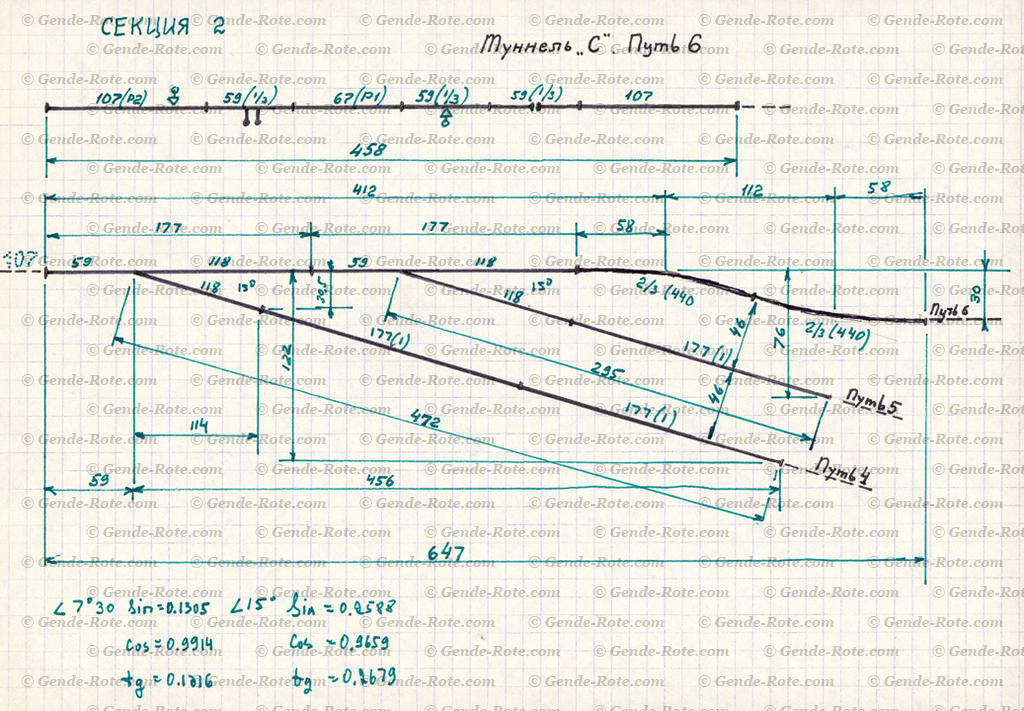 СЕКЦИЯ 2
Туннель „С". Путь 6
107(P2) 59(1/3) 67(P1) 59(1/3) 59(1/3) 107
458
412 112 58
177 177 58
107 59 118 59 118
118 15° 30,5 118 15° 2/3 (440 30
Путь 6
2/3 (440)
46 76
177(1) 177(1)
122 295
46 Путь 5
177(1)
472
114
Путь 4
59 456
647
∠7°30 Sin=0.1305 ∠15° Sin=0.2588
Cos=0.9914 Cos=0.9659
tg=0.1316 tg=0.2679
© Gende-Rote.com